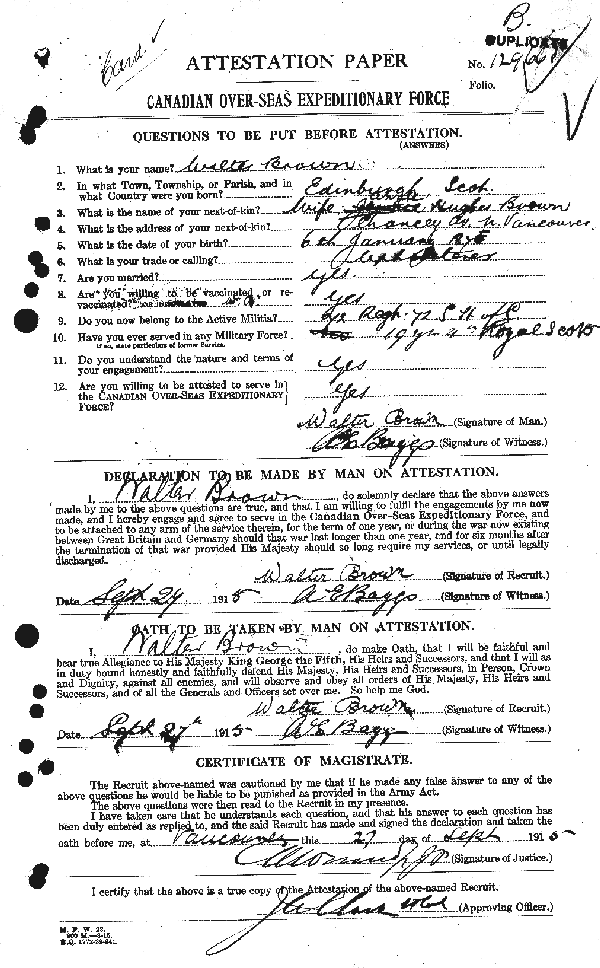 B.
DUPLICATE
Card ✓
ATTESTATION PAPER
No.
Folio.
CANADIAN OVER-SEAS EXPEDITIONARY FORCE
QUESTIONS TO BE PUT BEFORE ATTESTATION.
(ANSWERS)
1. What is your name? Walter Brown
2. In what Town, Township, or Parish, and in
what Country were you born? Edinburgh, Scot.
3. What is the name of your next-of-kin? Wife Hughes Brown
4. What is the address of your next-of-kin? N. Vancouver
5. What is the date of your birth? 6th January
6. What is your trade or calling?
7. Are you married? Yes.
8. Are you willing to be vaccinated or re-
vaccinated? Yes
9. Do you now belong to the Active Militia? Regt. 72 S. H. of C.
10. Have you ever served in any Military Force? 19 yrs Royal Scots
If so, state particulars of former Service.
11. Do you understand the nature and terms of
your engagement? Yes
12. Are you willing to be attested to serve in
the CANADIAN OVER-SEAS EXPEDITIONARY
FORCE? Yes
Walter Brown (Signature of Man.)
A E Baggs (Signature of Witness.)
DECLARATION TO BE MADE BY MAN ON ATTESTATION.
I, Walter Brown, do solemnly declare that the above answers
made by me to the above questions are true, and that I am willing to fulfil the engagements by me now
made, and I hereby engage and agree to serve in the Canadian Over-Seas Expeditionary Force, and
to be attached to any arm of the service therein, for the term of one year, or during the war now existing
between Great Britain and Germany should that war last longer than one year, and for six months after
the termination of that war provided His Majesty should so long require my services, or until legally
discharged.
Walter Brown (Signature of Recruit.)
Date Sept 27 1915 A E Baggs (Signature of Witness.)
OATH TO BE TAKEN BY MAN ON ATTESTATION.
I, Walter Brown, do make Oath, that I will be faithful and
bear true Allegiance to His Majesty King George the Fifth, His Heirs and Successors, and that I will as
in duty bound honestly and faithfully defend His Majesty, His Heirs and Successors, in Person, Crown
and Dignity, against all enemies, and will observe and obey all orders of His Majesty, His Heirs and
Successors, and of all the Generals and Officers set over me. So help me God.
Walter Brown (Signature of Recruit.)
Date Sept 27th 1915 A E Baggs (Signature of Witness.)
CERTIFICATE OF MAGISTRATE.
The Recruit above-named was cautioned by me that if he made any false answer to any of the
above questions he would be liable to be punished as provided in the Army Act.
The above questions were then read to the Recruit in my presence.
I have taken care that he understands each question, and that his answer to each question has
been duly entered as replied to, and the said Recruit has made and signed the declaration and taken the
oath before me, at Vancouver this 27 day of Sept 1915
(Signature of Justice.)
I certify that the above is a true copy of the Attestation of the above-named Recruit.
(Approving Officer.)
M. F. W. 23.